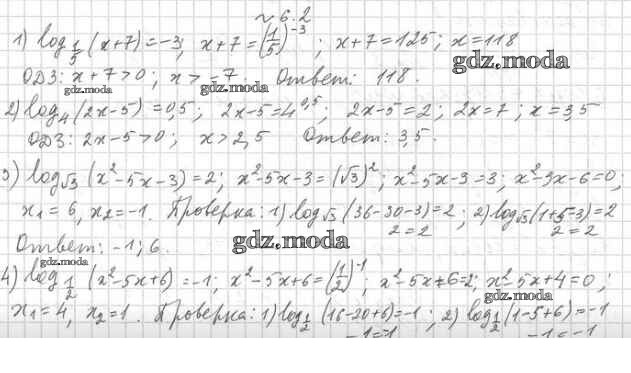 № 6.2
1) log_{1/5} (x+7) = -3; x+7 = (1/5)^{-3}; x+7 = 125; x = 118
gdz.moda
ОДЗ: x+7>0; x > -7. Ответ: 118.
gdz.moda
2) log_4 (2x-5) = 0,5; 2x-5 = 4^{0,5}; 2x-5 = 2; 2x = 7; x = 3,5
gdz.moda
ОДЗ: 2x-5>0; x > 2,5 Ответ: 3,5.
3) log_{√3} (x²-5x-3) = 2; x²-5x-3 = (√3)²; x²-5x-3 = 3; x²-5x-6 = 0;
x₁ = 6, x₂ = -1. Проверка: 1) log_{√3} (36-30-3) = 2; 2) log_{√3} (1+5-3) = 2
2 = 2 2 = 2
Ответ: -1; 6.
gdz.moda
gdz.moda
4) log_{1/2} (x²-5x+6) = -1; x²-5x+6 = (1/2)^{-1}; x²-5x+6 = 2; x²-5x+4 = 0;
gdz.moda
x₁ = 4, x₂ = 1. Проверка: 1) log_{1/2} (16-20+6) = -1; 2) log_{1/2} (1-5+6) = -1
-1 = -1 -1 = -1